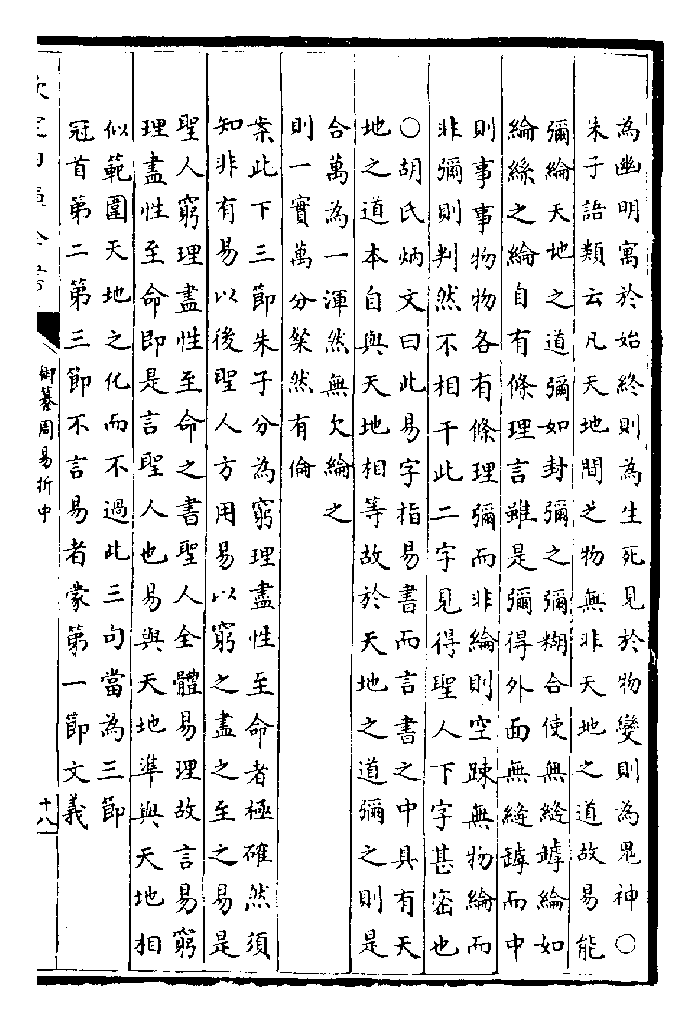 為幽明寓於始終則為生死見於物變則為鬼神○
朱子語類云凡天地間之物無非天地之道故易能
彌綸天地之道彌如封彌之彌糊合使無縫罅綸如
綸絲之綸自有條理言雖是彌得外面無縫罅而中
則事事物物各有條理彌而非綸則空疎無物綸而
非彌則判然不相干此二字見得聖人下字甚密也
○胡氏炳文曰此易字指易書而言書之中具有天
地之道本自與天地相等故於天地之道彌之則是
合萬為一渾然無欠綸之
則一實萬分粲然有倫
案此下三節朱子分為窮理盡性至命者極確然須
知非有易以後聖人方用易以窮之盡之至之易是
聖人窮理盡性至命之書聖人全體易理故言易窮
理盡性至命即是言聖人也易與天地準與天地相
似範圍天地之化而不過此三句當為三節
冠首第二第三節不言易者蒙第一節文義
欽定四庫全書
御纂周易折中
十八